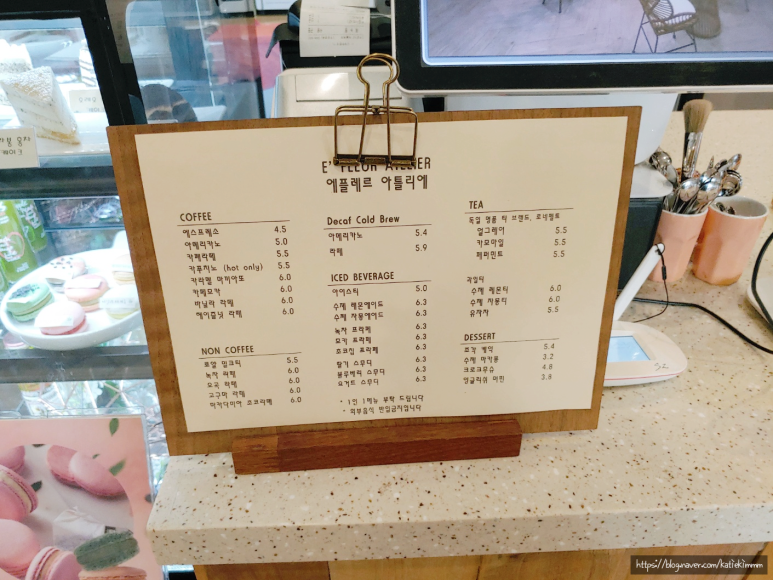 E' FLEUR ATELIER
에플레르 아틀리에
COFFEE
에스프레소 4.5
아메리카노 5.0
카페라떼 5.5
카푸치노 (hot only) 5.5
카라멜 마끼아또 6.0
카페모카 6.0
바닐라 라떼 6.0
헤이즐넛 라떼 6.0
NON COFFEE
로얄 밀크티 5.5
녹차 라떼 6.0
모곡 라떼 6.0
고구마 라떼 6.0
마카다미아 초코라떼 6.0
Decaf Cold Brew
아메리카노 5.4
라떼 5.9
ICED BEVERAGE
아이스티 5.0
수제 레몬에이드 6.3
수제 자몽에이드 6.3
녹차 프라페 6.3
모카 프라페 6.3
초코칩 프라페 6.3
딸기 스무디 6.3
블루베리 스무디 6.3
요거트 스무디 6.3
* 1인 1메뉴 부탁 드립니다
* 외부음식 반입금지입니다
TEA
독일 명품 티 브랜드, 로네펠트
얼그레이 5.5
카모마일 5.5
페퍼민트 5.5
과일티
수제 레몬티 6.0
수제 자몽티 6.0
유자차 5.5
DESSERT
조각 케익 5.4
수제 마카롱 3.2
크로크무슈 4.8
잉글리쉬 머핀 3.8
https://blog.naver.com/katiekimmm